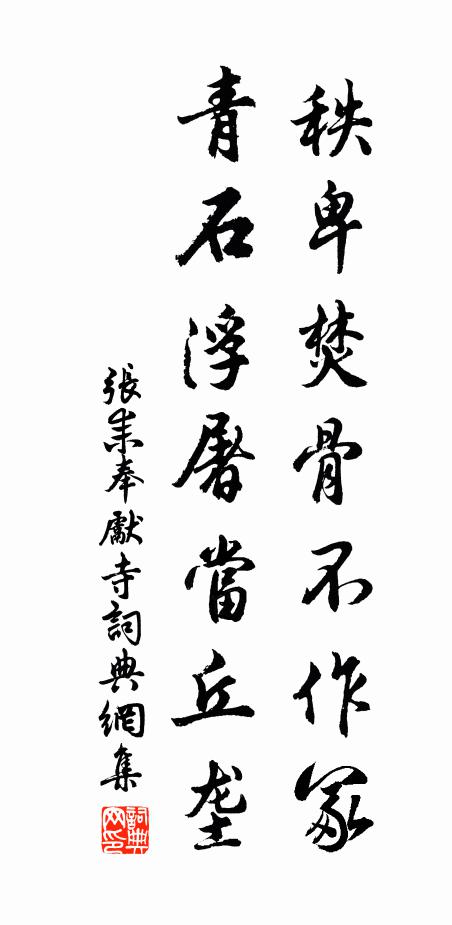 秩卑焚骨不作冢
青石浮屠當丘垄
張耒奉獻寺詞典網集
詞典网印